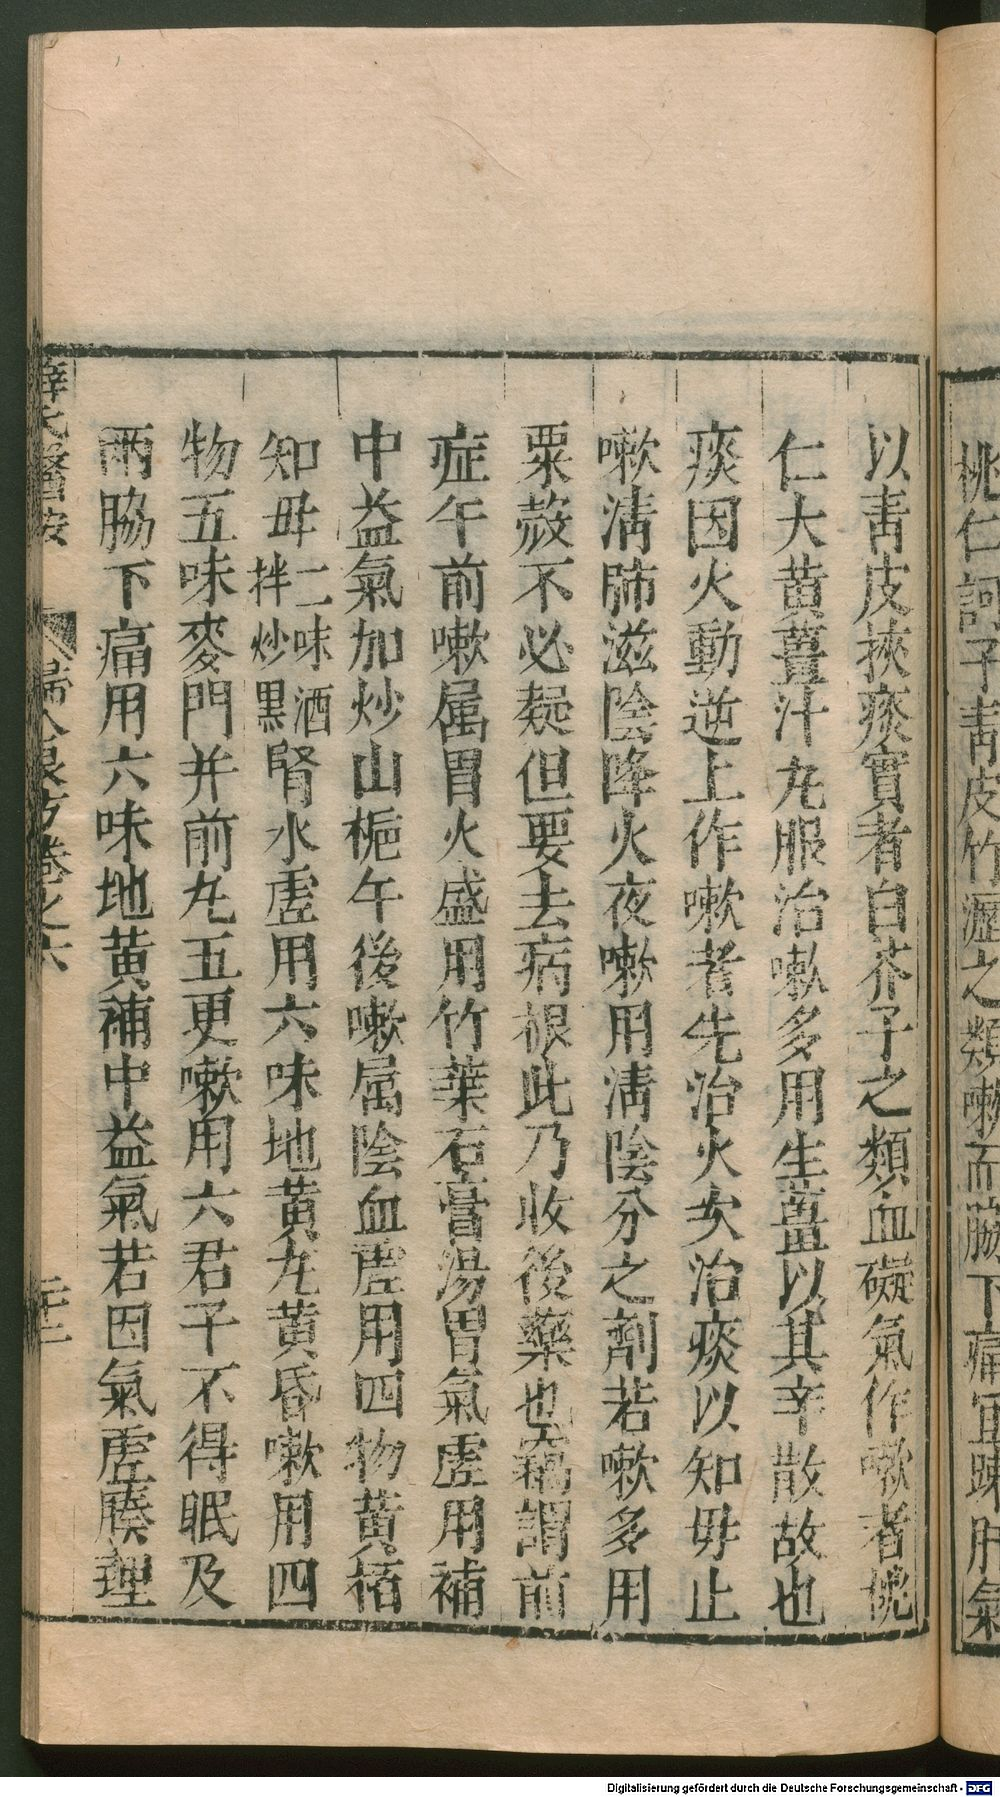 桃仁訶子青皮竹瀝之類嗽而脇下痛宜疎肝氣
以青皮挾痰實者白芥子之類血礙氣作嗽者桃
仁大黃薑汁丸服治嗽多用生薑以其辛散故也
痰因火動逆上作嗽者先治火次治痰以知毋止
嗽清肺滋陰降火夜嗽用清陰分之劑若嗽多用
粟殼不必疑但要去病根此乃收後藥也竊謂前
症午前嗽属胃火盛用竹葉石膏湯胃氣虛用補
中益氣加炒山梔午後嗽属陰血虛用四物黃栢
知毋二味酒拌炒黑腎水虛用六味地黃丸黃昏嗽用四
物五味麥門并前丸五更嗽用六君子不得眠及
兩脇下痛用六味地黃補中益氣若因氣虛腠理
薛氏醫按 婦人良方卷之六 二十二
Digitalisierung gefördert durch die Deutsche Forschungsgemeinschaft - DFG